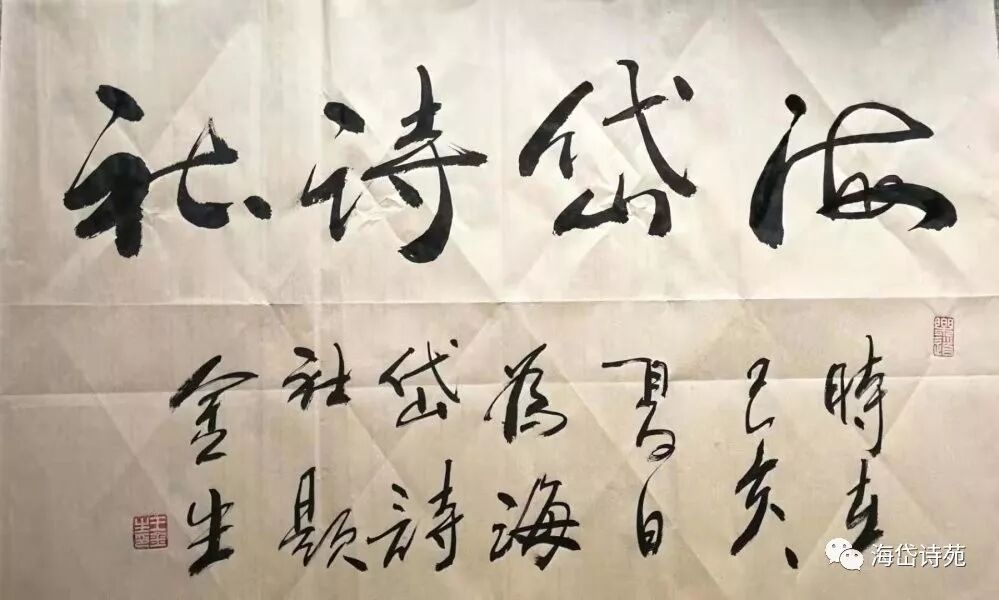 海岱诗社
時在
己亥
夏日
為海
岱詩
社題
金生
海岱诗苑